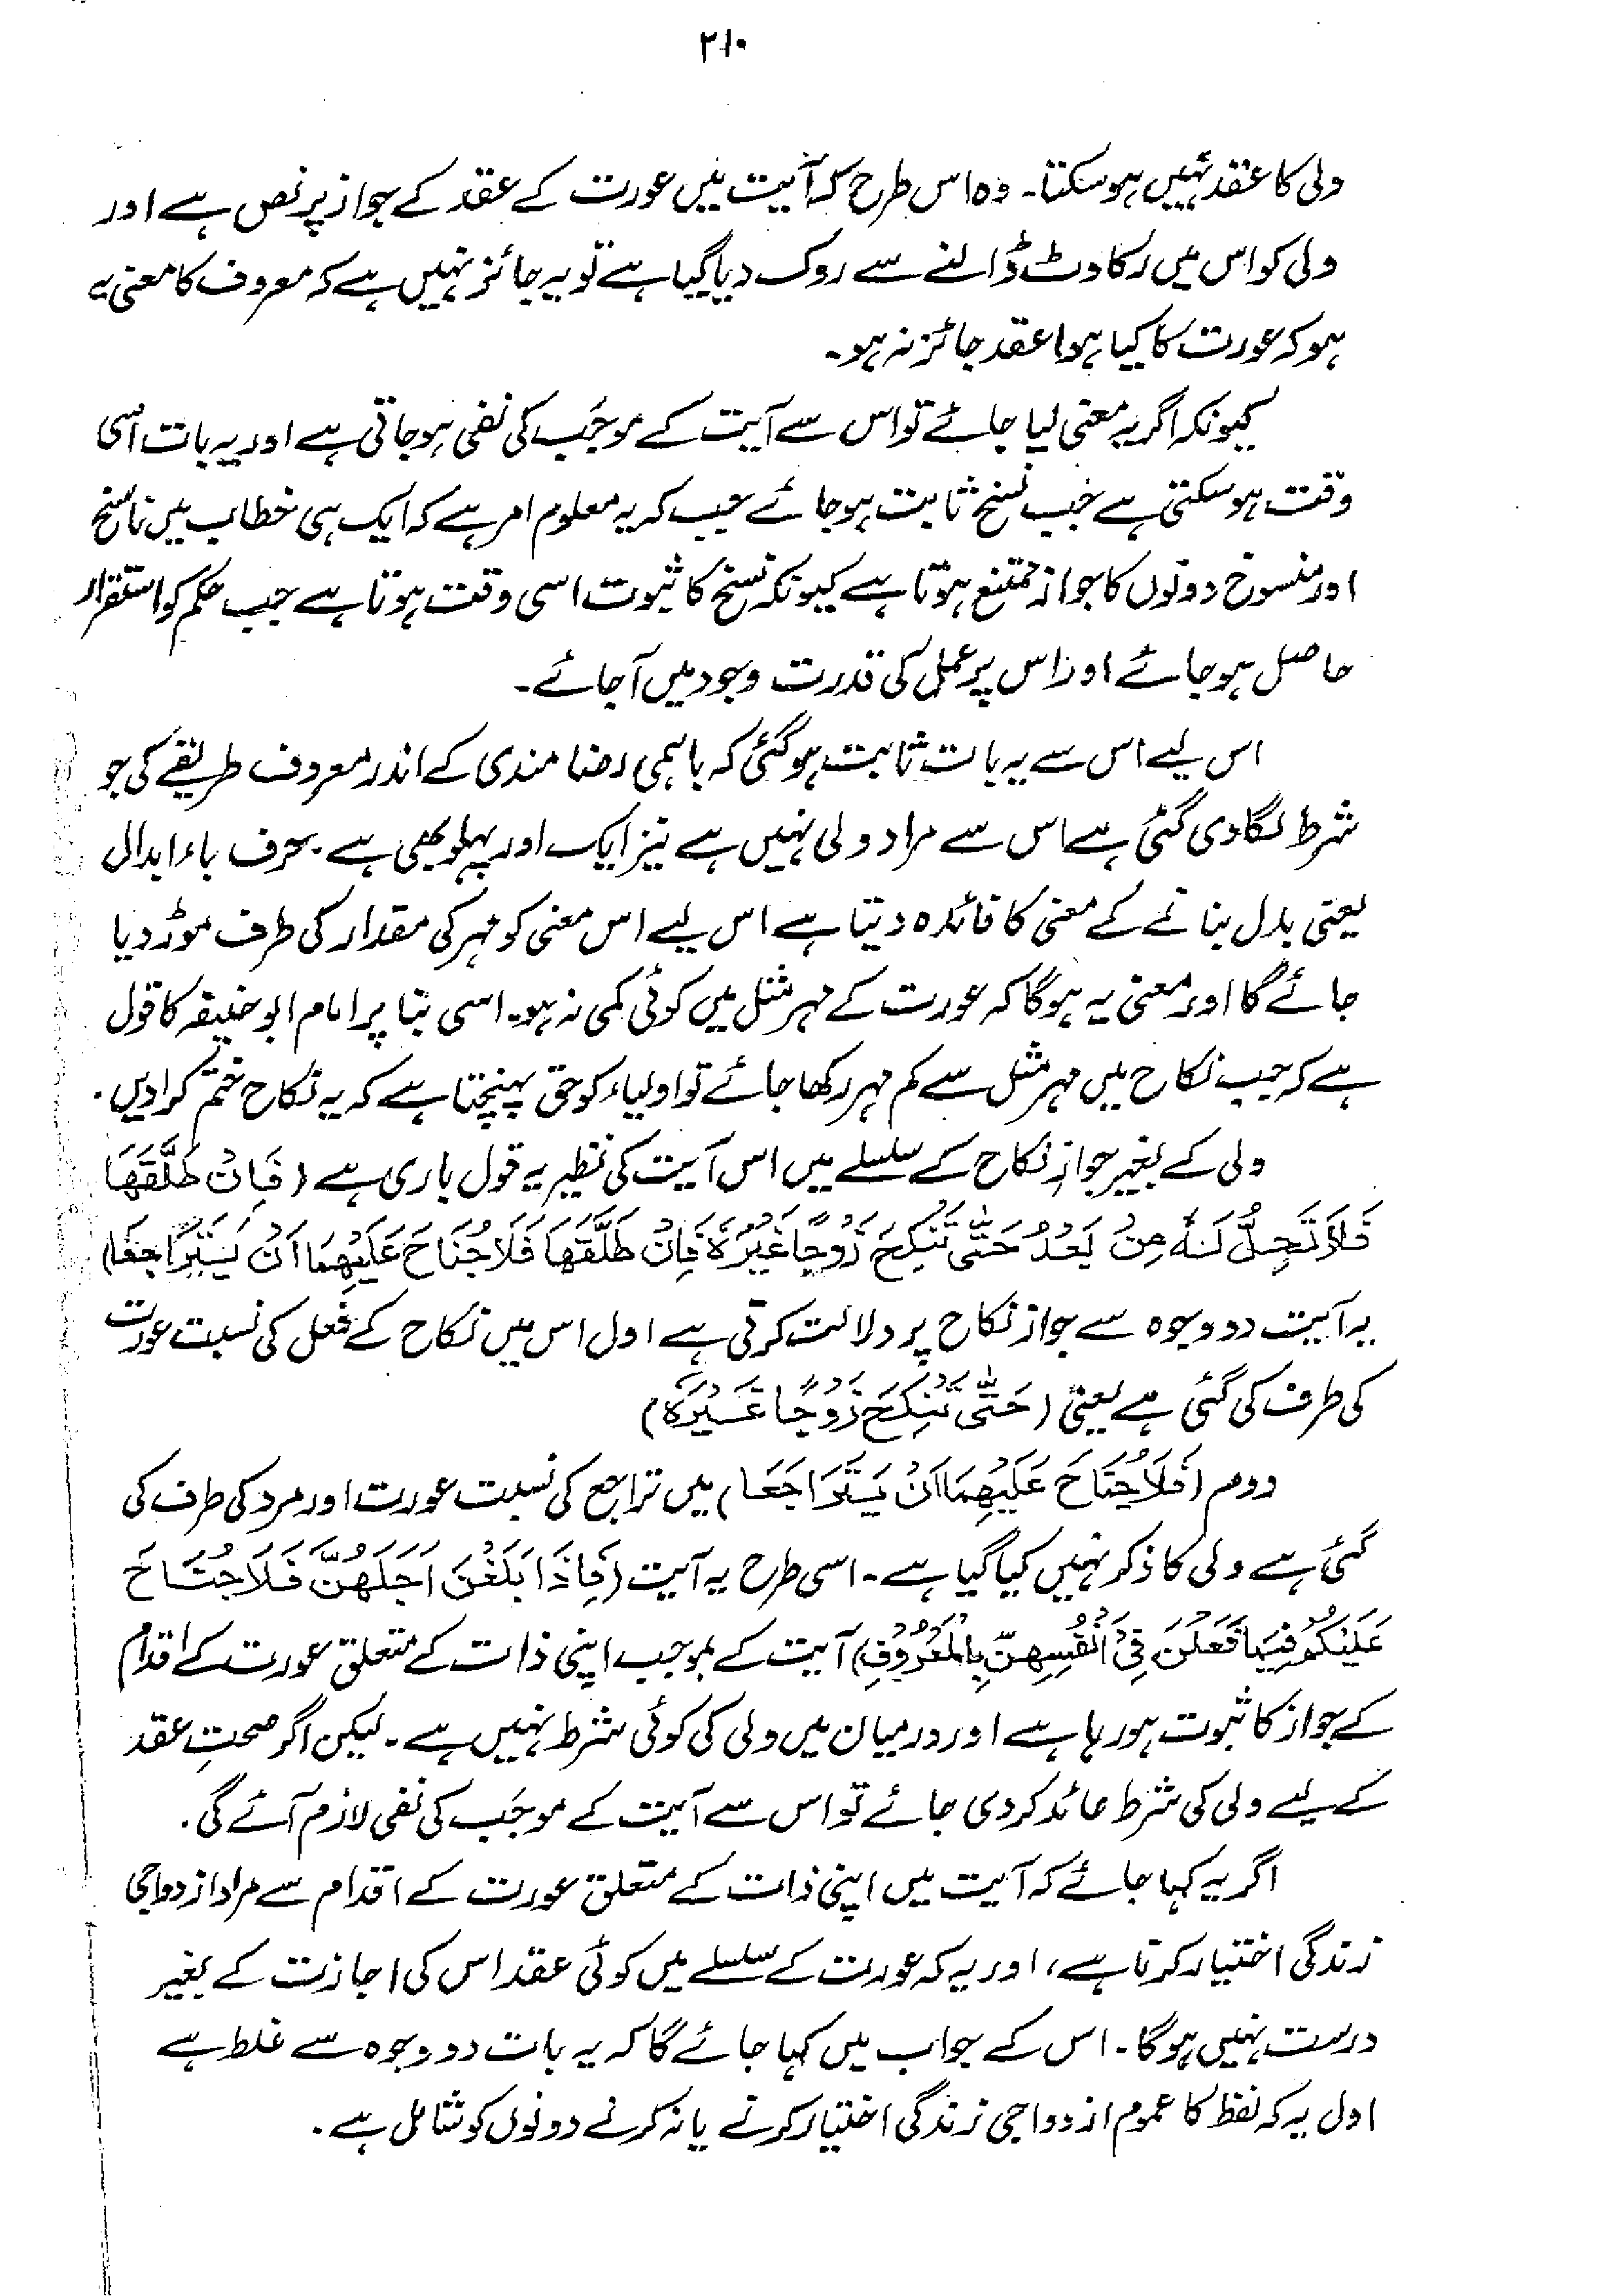 ۲۱۰
ولی کا عقد نہیں ہو سکتا۔ وہ اس طرح کہ آیت میں عورت کے عقد کے جواز پر نص ہے اور
ولی کو اس میں رکاوٹ ڈالنے سے روک دیا گیا ہے تو یہ جائز نہیں ہے کہ معروف کا معنی یہ
ہو کہ عورت کا کیا ہوا عقد جائز نہ ہو۔
کیونکہ اگر یہ معنی لیا جائے تو اس سے آیت کے موجَب کی نفی ہو جاتی ہے اور یہ بات اسی
وقت ہو سکتی ہے جب نسخ ثابت ہو جائے جب کہ یہ معلوم امر ہے کہ ایک ہی خطاب میں ناسخ
اور منسوخ دونوں کا جواز ممتنع ہوتا ہے کیونکہ نسخ کا ثبوت اسی وقت ہوتا ہے جب حکم کو استقرار
حاصل ہو جائے اور اس پر عمل کی قدرت وجود میں آجائے۔
اس لیے اس سے یہ بات ثابت ہو گئی کہ باہمی رضا مندی کے اندر معروف طریقے کی جو
شرط لگا دی گئی ہے اس سے مراد ولی نہیں ہے نیز ایک اور پہلو بھی ہے۔ حرف باء ابدال
یعنی بدل بنانے کے معنی کا فائدہ دیتا ہے اس لیے اس معنی کو مہر کی مقدار کی طرف موڑ دیا
جائے گا اور معنی یہ ہوگا کہ عورت کے مہر مثل میں کوئی کمی نہ ہو۔ اسی بنا پر امام ابو حنیفہ کا قول
ہے کہ جب نکاح میں مہر مثل سے کم مہر رکھا جائے تو اولیاء کو حق پہنچتا ہے کہ یہ نکاح ختم کرادیں۔
ولی کے بغیر جوازِ نکاح کے سلسلے میں اس آیت کی نظیر یہ قول باری ہے (فَاِنْ طَلَّقَهَا
فَلَا تَحِلُّ لَهٗ مِنْ بَعْدُ حَتّٰى تَنْكِحَ زَوْجًا غَيْرَهٗ فَاِنْ طَلَّقَهَا فَلَا جُنَاحَ عَلَيْهِمَا اَنْ يَّتَرَاجَعَا)
یہ آیت دو وجوہ سے جواز نکاح پر دلالت کرتی ہے اول اس میں نکاح کے فعل کی نسبت عورت
کی طرف کی گئی ہے یعنی (حَتّٰى تَنْكِحَ زَوْجًا غَيْرَهٗ)
دوم (فَلَا جُنَاحَ عَلَيْهِمَا اَنْ يَّتَرَاجَعَا) میں تراجع کی نسبت عورت اور مرد کی طرف کی
گئی ہے ولی کا ذکر نہیں کیا گیا ہے۔ اسی طرح یہ آیت (فَاِذَا بَلَغْنَ اَجَلَهُنَّ فَلَا جُنَاحَ
عَلَيْكُمْ فِيْمَا فَعَلْنَ فِيْٓ اَنْفُسِهِنَّ بِالْمَعْرُوْفِ) آیت کے بموجب اپنی ذات کے متعلق عورت کے اقدام
کے جواز کا ثبوت ہو رہا ہے اور درمیان میں ولی کی کوئی شرط نہیں ہے۔ لیکن اگر صحتِ عقد
کے لیے ولی کی شرط عائد کردی جائے تو اس سے آیت کے موجَب کی نفی لازم آئے گی۔
اگر یہ کہا جائے کہ آیت میں اپنی ذات کے متعلق عورت کے اقدام سے مراد ازدواجی
زندگی اختیار کرنا ہے، اور یہ کہ عورت کے سلسلے میں کوئی عقد اس کی اجازت کے بغیر
درست نہیں ہوگا۔ اس کے جواب میں کہا جائے گا کہ یہ بات دو وجوہ سے غلط ہے
اول یہ کہ لفظ کا عموم ازدواجی زندگی اختیار کرنے یا نہ کرنے دونوں کو شامل ہے۔